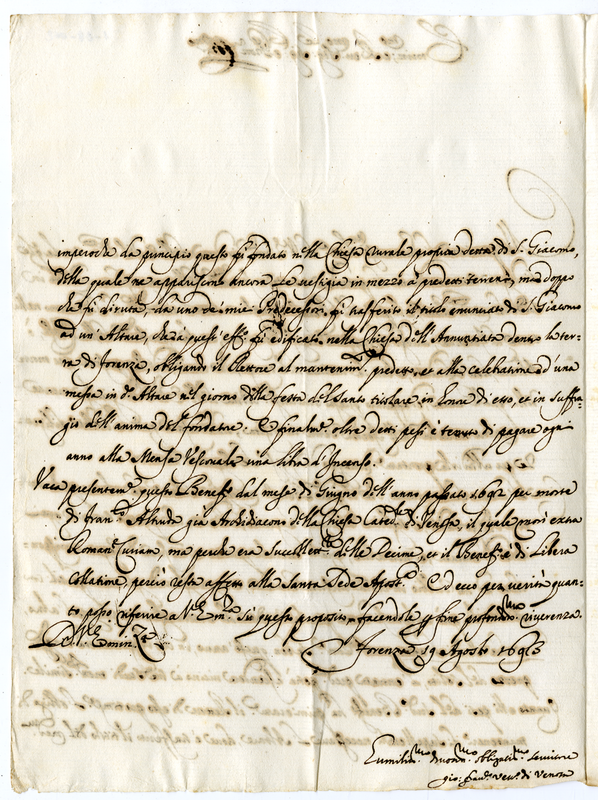 imperoche da principio questo fù fondato nella Chiesa rurale propria detta di S. Giacomo,
della quale ne appariscono ancora le vestigia in mezzo à predetti terreni, mà doppo
che fù diruta, da uno de' miei Predecessori fù trasferito il titolo enunciato di S. Giacomo
ad un' Altare, che à quest' eff.o fù edificato nella Chiesa dell' Annuntiata dentro la ter-
ra di forenza, obligando il Rettore al mantenim.to predetto, et alla celebratione d' una
messa in d.o Altare nel giorno della festa del Santo titolare in honore di esso, et in suffra-
gio dell' anima del fondatore. E finalm.te oltre detti pesi è tenuto di pagare ogni
anno alla Mensa Vescovale una libra d' Incenso.
Vaca presentem.te questo Benef.o dal mese di Giugno dell' anno passato 1692 per morte
di fran.o già Archidiacono della Chiesa Cated.le di Venosa, il quale morì extra
Roman. Curiam, ma perche era Succollett.re delle Decime, et il Benef.o è di libera
Collatione, perciò resta affetto alla Santa Sede Apost.ca Ed ecco per verità quan-
to posso riferire a V. Em.a sù questo proposito, facendole p fine profondiss.mo riverenza.
D. V. Emin.za
Forenza 19 Agosto 1693
Humiliss.mo obligatiss.mo Servitore
gio: fran.o vesc.o di Venosa